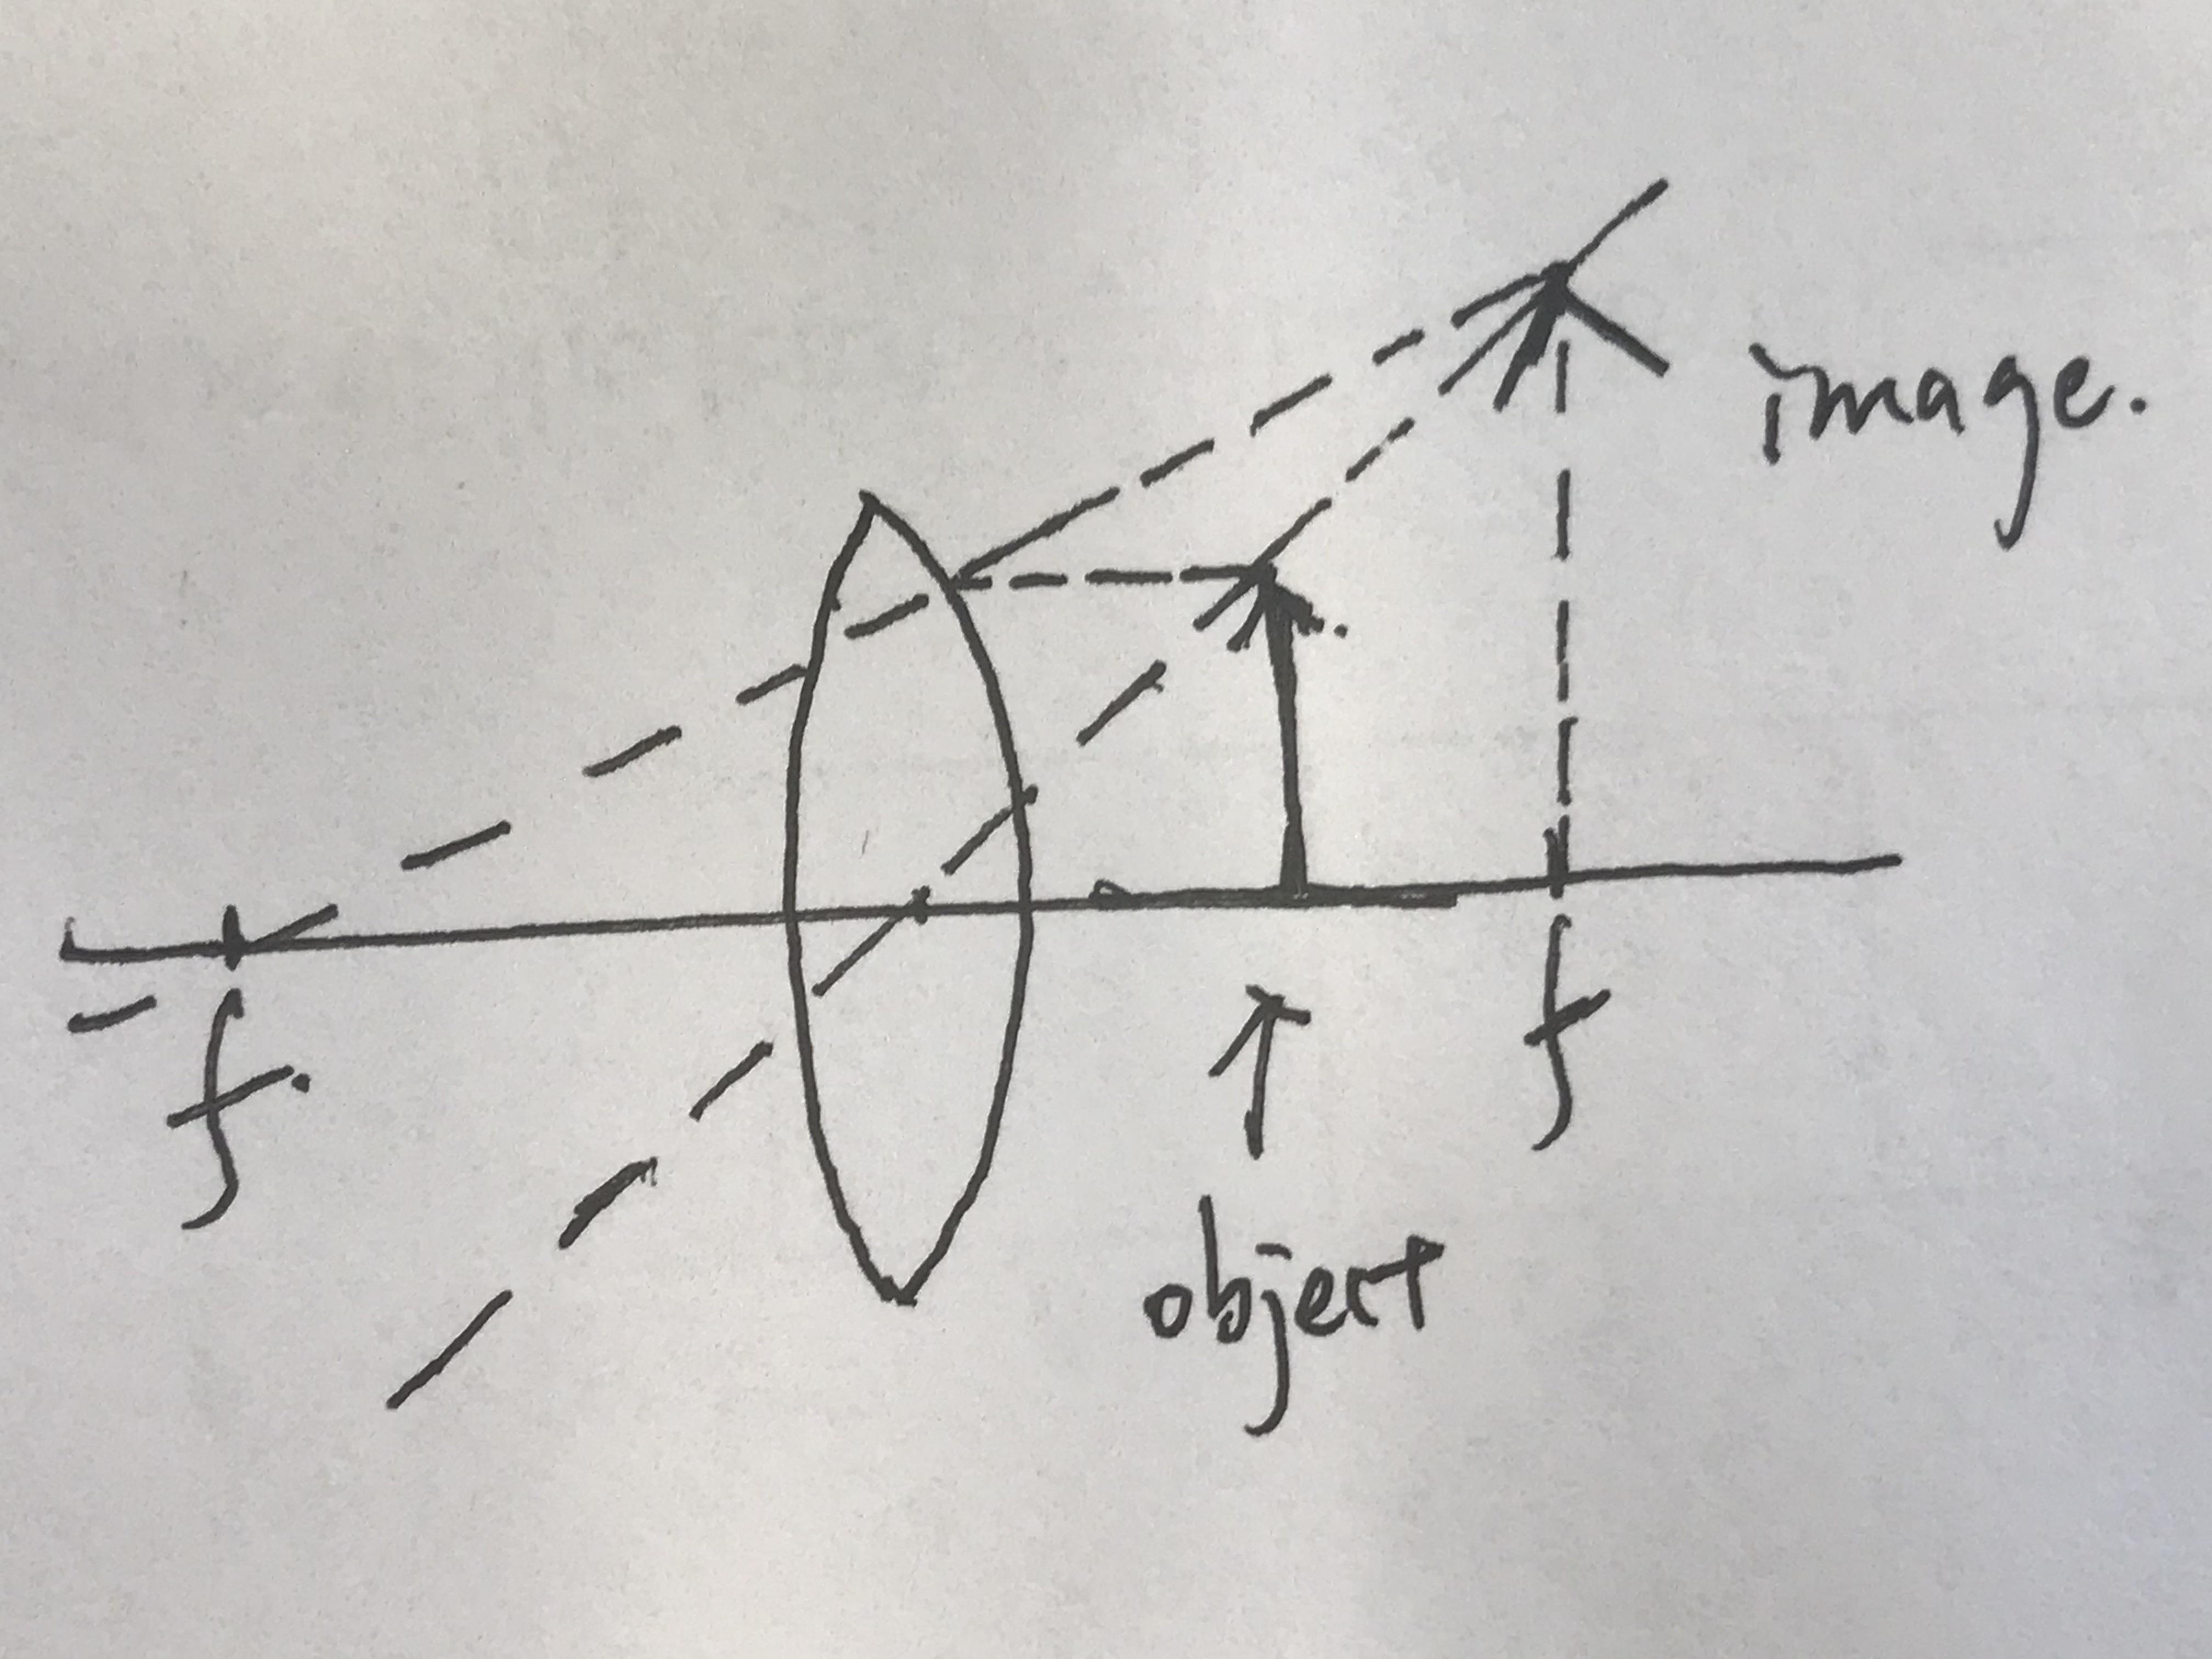 image.
f.
f
object